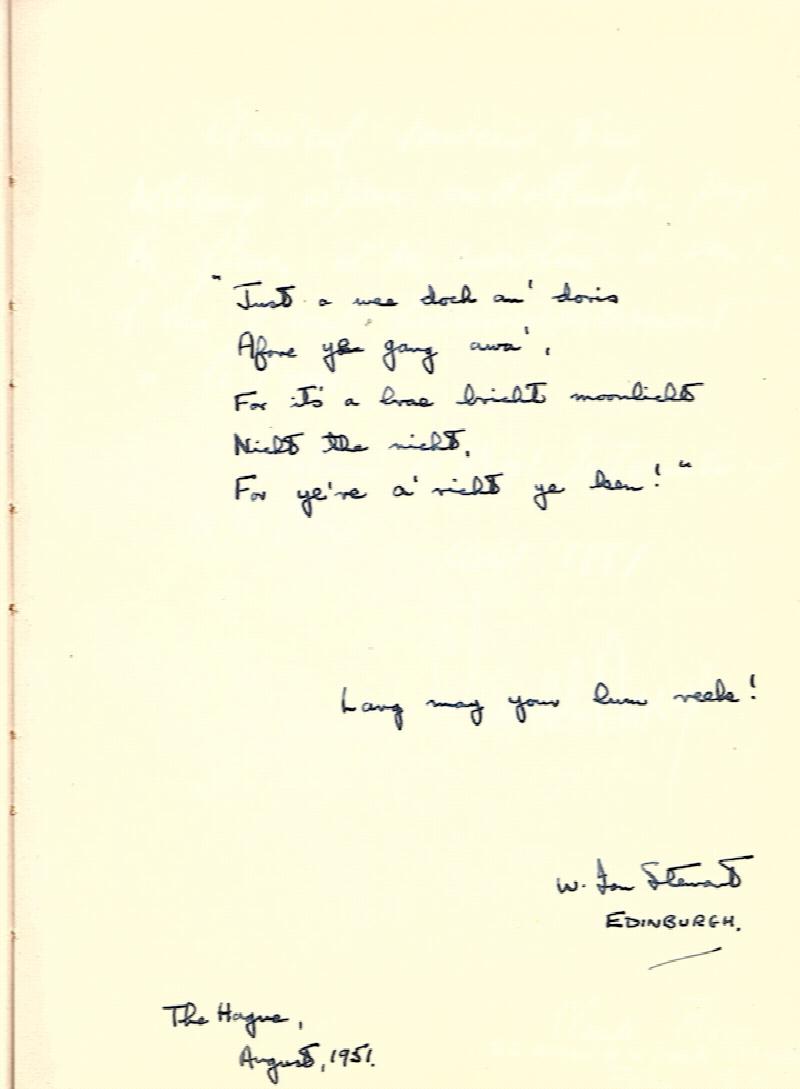 "Just a wee doch an' doris
Afore ye gang awa',
For it's a brae bricht moonlicht
Nicht the nicht,
For ye're a' richt ye ken!"
Lang may your lum reek!
W. Ian Stewart
EDINBURGH.
The Hague,
August, 1951.